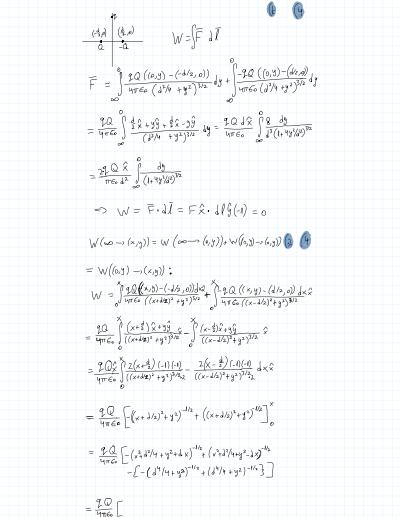 (-d/2,0) (d/2,0)
Q -Q
W = ∫F̄ dl̄
F̄ = ∫_∞^0 qQ((0,y) - (-d/2,0)) / 4πε0 (d²/4 + y²)^{3/2} dy + ∫_∞^0 -qQ((0,y) - (d/2,0)) / 4πε0 (d²/4 + y²)^{3/2} dy
= qQ/4πε0 ∫_∞^0 (d/2 x̂ + yŷ + d/2 x̂ - yŷ) / (d²/4 + y²)^{3/2} dy = qQ/4πε0 d x̂ ∫_∞^0 8 dy / d³(1+4y²/d²)^{3/2}
= 2qQ x̂ / πε0 d² ∫_∞^0 dy / (1+4y²/d²)^{3/2}
⇒ W = F̄ · dl̄ = F x̂ · dl ŷ (-1) = 0
W(∞→(x,y)) = W(∞→(0,y)) + W((0,y)→(x,y))
= W((0,y) → (x,y)) :
W = ∫_0^x qQ((x,y) - (-d/2,0)) dx x̂ / 4πε0 ((x+d/2)² + y²)^{3/2} + ∫_0^x -qQ((x,y) - (d/2,0)) dx x̂ / 4πε0 ((x-d/2)² + y²)^{3/2}
= qQ/4πε0 ∫_0^x (x+d/2) x̂ + yŷ / ((x+d/2)² + y²)^{3/2} · x̂ - ∫_0^x (x-d/2) x̂ + yŷ / ((x-d/2)² + y²)^{3/2} · x̂
= qQ x̂/4πε0 ∫_0^x 2(x+d/2)(-1)(-1) / ((x+d/2)² + y²)^{3/2} 2 - 2(x-d/2)(-1)(-1) / ((x-d/2)² + y²)^{3/2} 2 dx x̂
= qQ/4πε0 [-((x+d/2)² + y²)^{-1/2} + ((x+d/2)² + y²)^{-1/2}]_0^x
= qQ/4πε0 [-(x²+d²/4 + y² + dx)^{-1/2} + (x²+d²/4 + y² - dx)^{-1/2}
-[-(d²/4 + y²)^{-1/2} + (d²/4 + y²)^{-1/2}]]
= qQ/4πε0 [